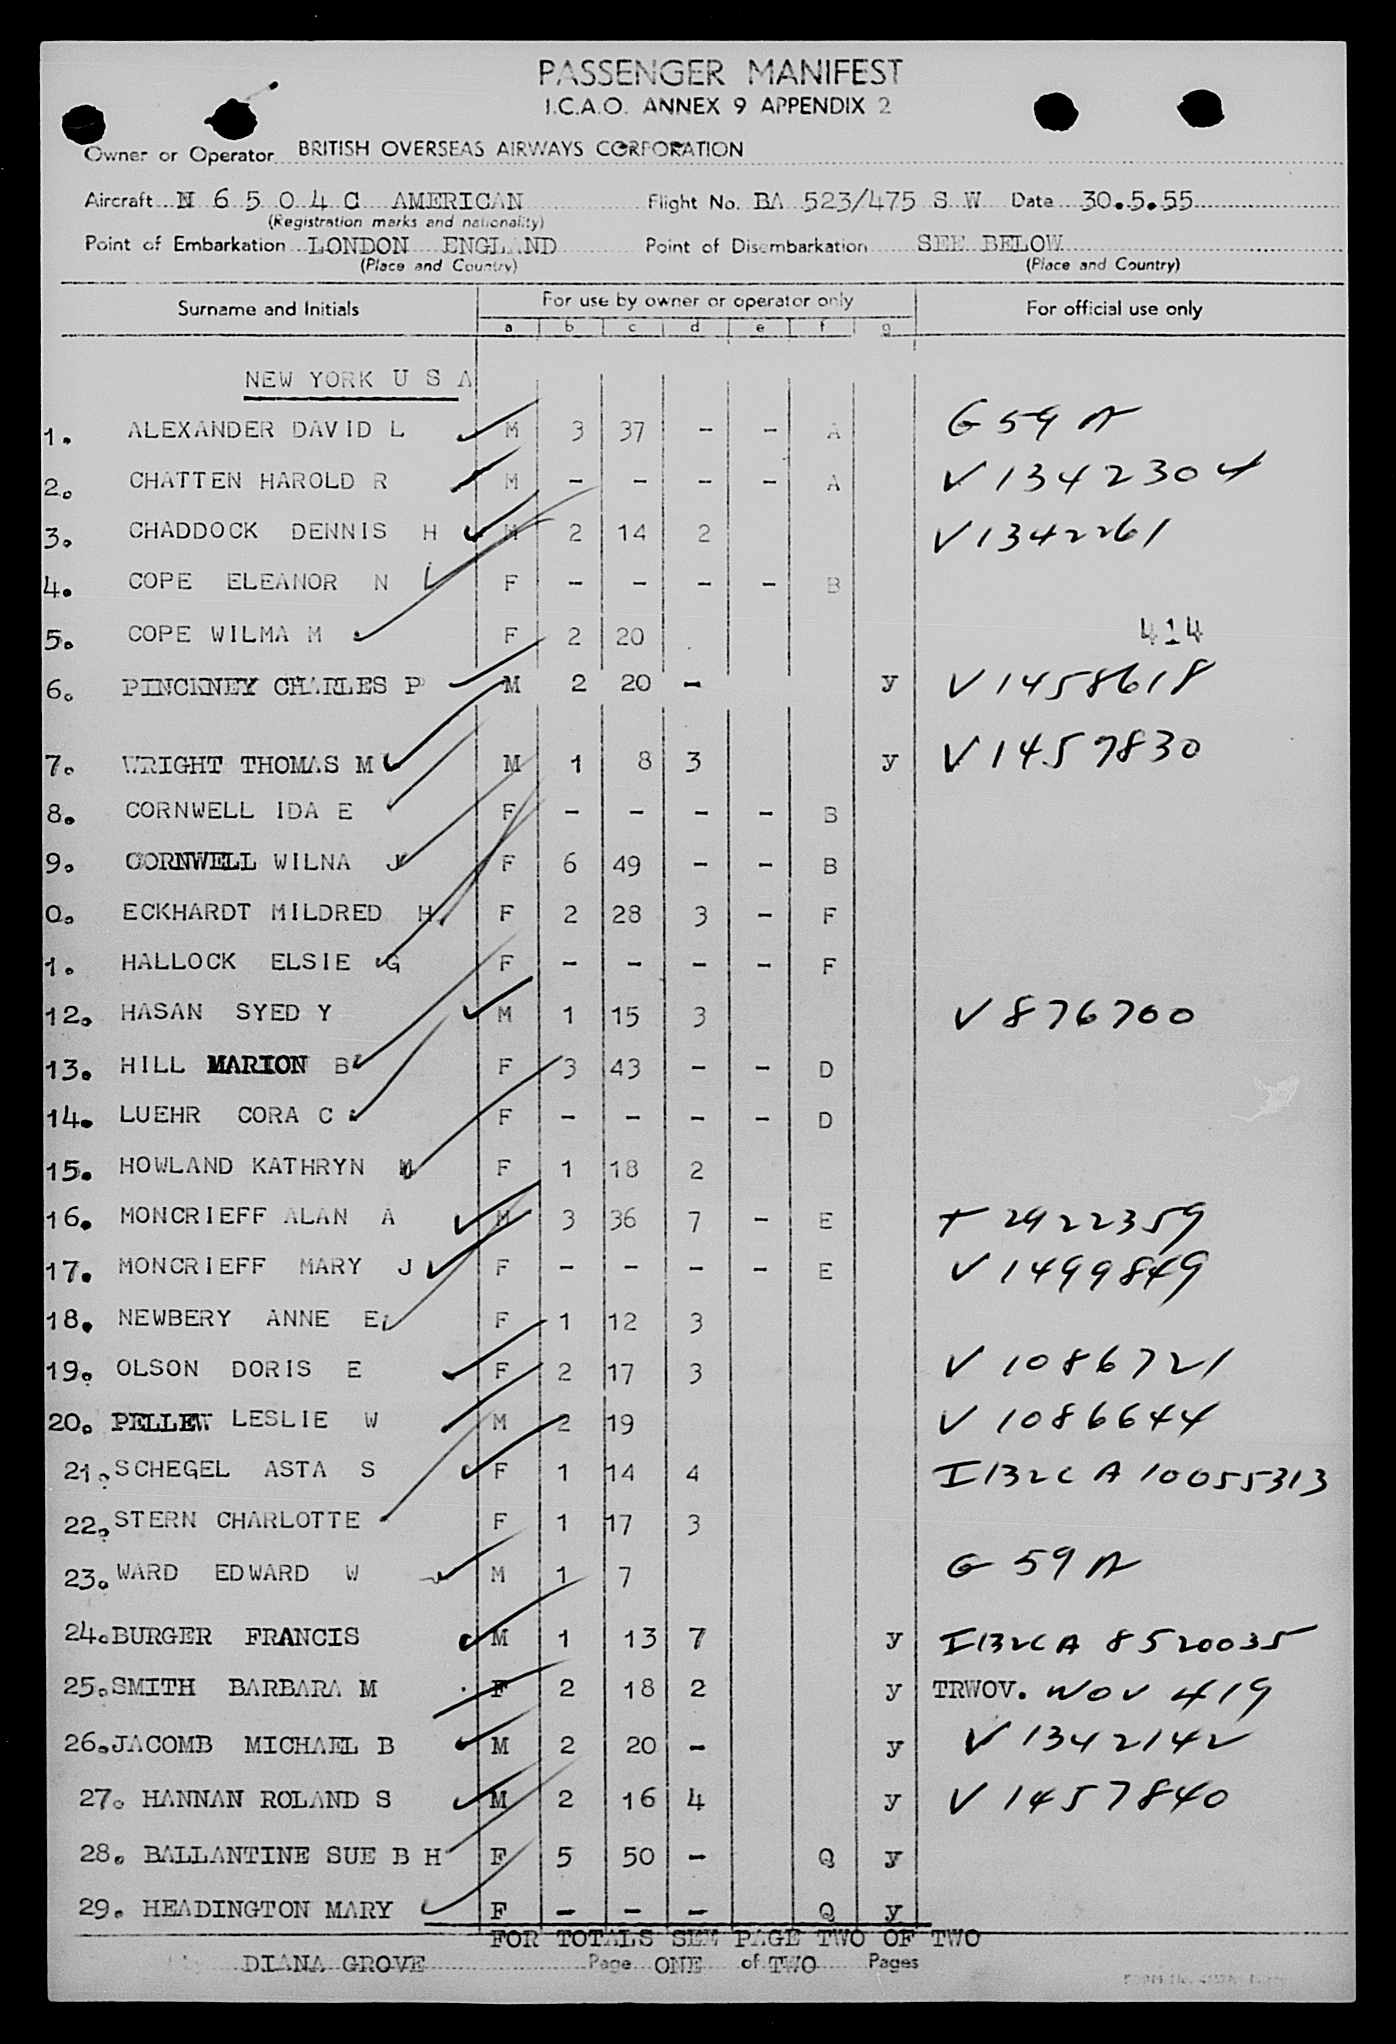 PASSENGER MANIFEST
I.C.A.O. ANNEX 9 APPENDIX 2
Owner or Operator BRITISH OVERSEAS AIRWAYS CORPORATION
Aircraft N 6 5 0 4 C AMERICAN Flight No. BA 523/475 S W Date 30.5.55
(Registration marks and nationality)
Point of Embarkation LONDON ENGLAND Point of Disembarkation SEE BELOW
(Place and Country) (Place and Country)
Surname and Initials For use by owner or operator only For official use only
a b c d e f g
NEW YORK U S A
1. ALEXANDER DAVID L M 3 37 - - A G 59 A
2. CHATTEN HAROLD R M - - - - A V 1342304
3. CHADDOCK DENNIS H M 2 14 2 V 1342261
4. COPE ELEANOR N F - - - - B
5. COPE WILMA M F 2 20 414
6. PINCKNEY CHARLES P M 2 20 - y V 1458618
7. WRIGHT THOMAS M M 1 8 3 y V 1457830
8. CORNWELL IDA E F - - - - B
9. CORNWELL WILNA J F 6 49 - - B
0. ECKHARDT MILDRED H F 2 28 3 - F
1. HALLOCK ELSIE G F - - - - F
12. HASAN SYED Y M 1 15 3 V 876700
13. HILL MARION B F 3 43 - - D
14. LUEHR CORA C F - - - - D
15. HOWLAND KATHRYN M F 1 18 2
16. MONCRIEFF ALAN A M 3 36 7 - E T 2922359
17. MONCRIEFF MARY J F - - - - E V 1499849
18. NEWBERY ANNE E F 1 12 3
19. OLSON DORIS E F 2 17 3 V 1086721
20. PELLEW LESLIE W M 2 19 V 1086644
21. SCHEGEL ASTA S F 1 14 4 I 132C A 10055313
22. STERN CHARLOTTE F 1 17 3
23. WARD EDWARD W M 1 7 G 59 A
24. BURGER FRANCIS M 1 13 7 y I 132C A 8520035
25. SMITH BARBARA M F 2 18 2 y TRWOV. WOV 419
26. JACOMB MICHAEL B M 2 20 - y V 1342142
27. HANNAN ROLAND S M 2 16 4 y V 1457840
28. BALLANTINE SUE B H F 5 50 - Q y
29. HEADINGTON MARY F - - - Q y
FOR TOTALS SEE PAGE TWO OF TWO
DIANA GROVE Page ONE of TWO Pages